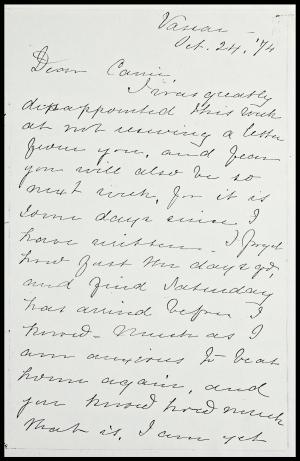 Vassar —
Oct. 24, '74
Dear Carrie,
I was greatly
disappointed this week
at not receiving a letter
from you, and fear
you will also be so
next week, for it is
some days since I
have written. I forget
how fast the days go,
and find Saturday
has arrived before I
know. Much as I
am anxious to be at
home again, and
you know how much
that is, I am yet